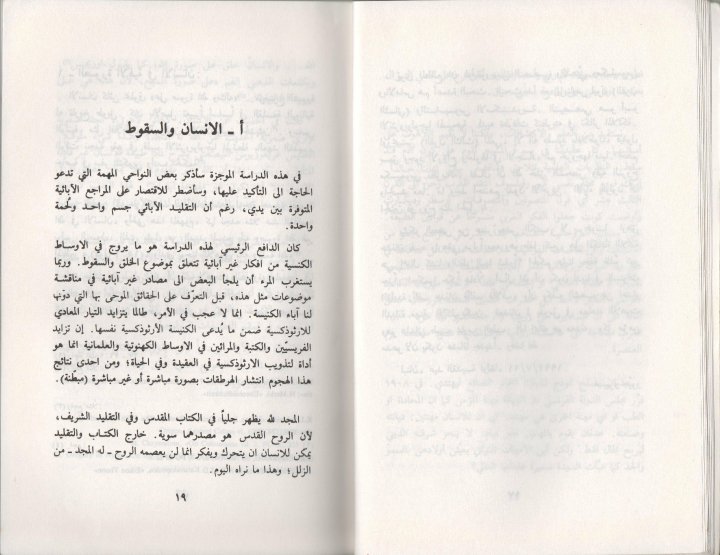 أ ـ الانسان والسقوط
في هذه الدراسة الموجزة سأذكر بعض النواحي المهمة التي تدعو
الحاجة الى التأكيد عليها، وسأضطر للاقتصار على المراجع الآبائية
المتوفرة بين يدي، رغم أن التقليد الآبائي جسم واحد ولحمة
واحدة.
كان الدافع الرئيسي لهذه الدراسة هو ما يروج في الاوساط
الكنسية من افكار غير آبائية تتعلق بموضوع الخلق والسقوط. وربما
يستغرب المرء أن يلجأ البعض الى مصادر غير آبائية في مناقشة
موضوعات مثل هذه، قبل التعرّف على الحقائق الموحى بها التي دوّنها
لنا آباء الكنيسة. انما لا عجب في الأمر، طالما يتزايد التيار المعادي
للارثوذكسية ضمن ما يُدعى الكنيسة الأرثوذكسية نفسها. إن تزايد
الفريسيّين والكتبة والمرائين في الاوساط الكهنوتية والعلمانية انما هو
أداة لتذويب الارثوذكسية في العقيدة وفي الحياة؛ ومن احدى نتائج
هذا الهجوم انتشار الهرطقات بصورة مباشرة أو غير مباشرة (مبطّنة).
المجد لله يظهر جلياً في الكتاب المقدس وفي التقليد الشريف،
لأن الروح القدس هو مصدرهما سوية. خارج الكتاب والتقليد
يمكن للانسان ان يتحرك ويفكر انما لن يعصمه الروح ـ له المجد ـ من
الزلل؛ وهذا ما نراه اليوم.
١٩